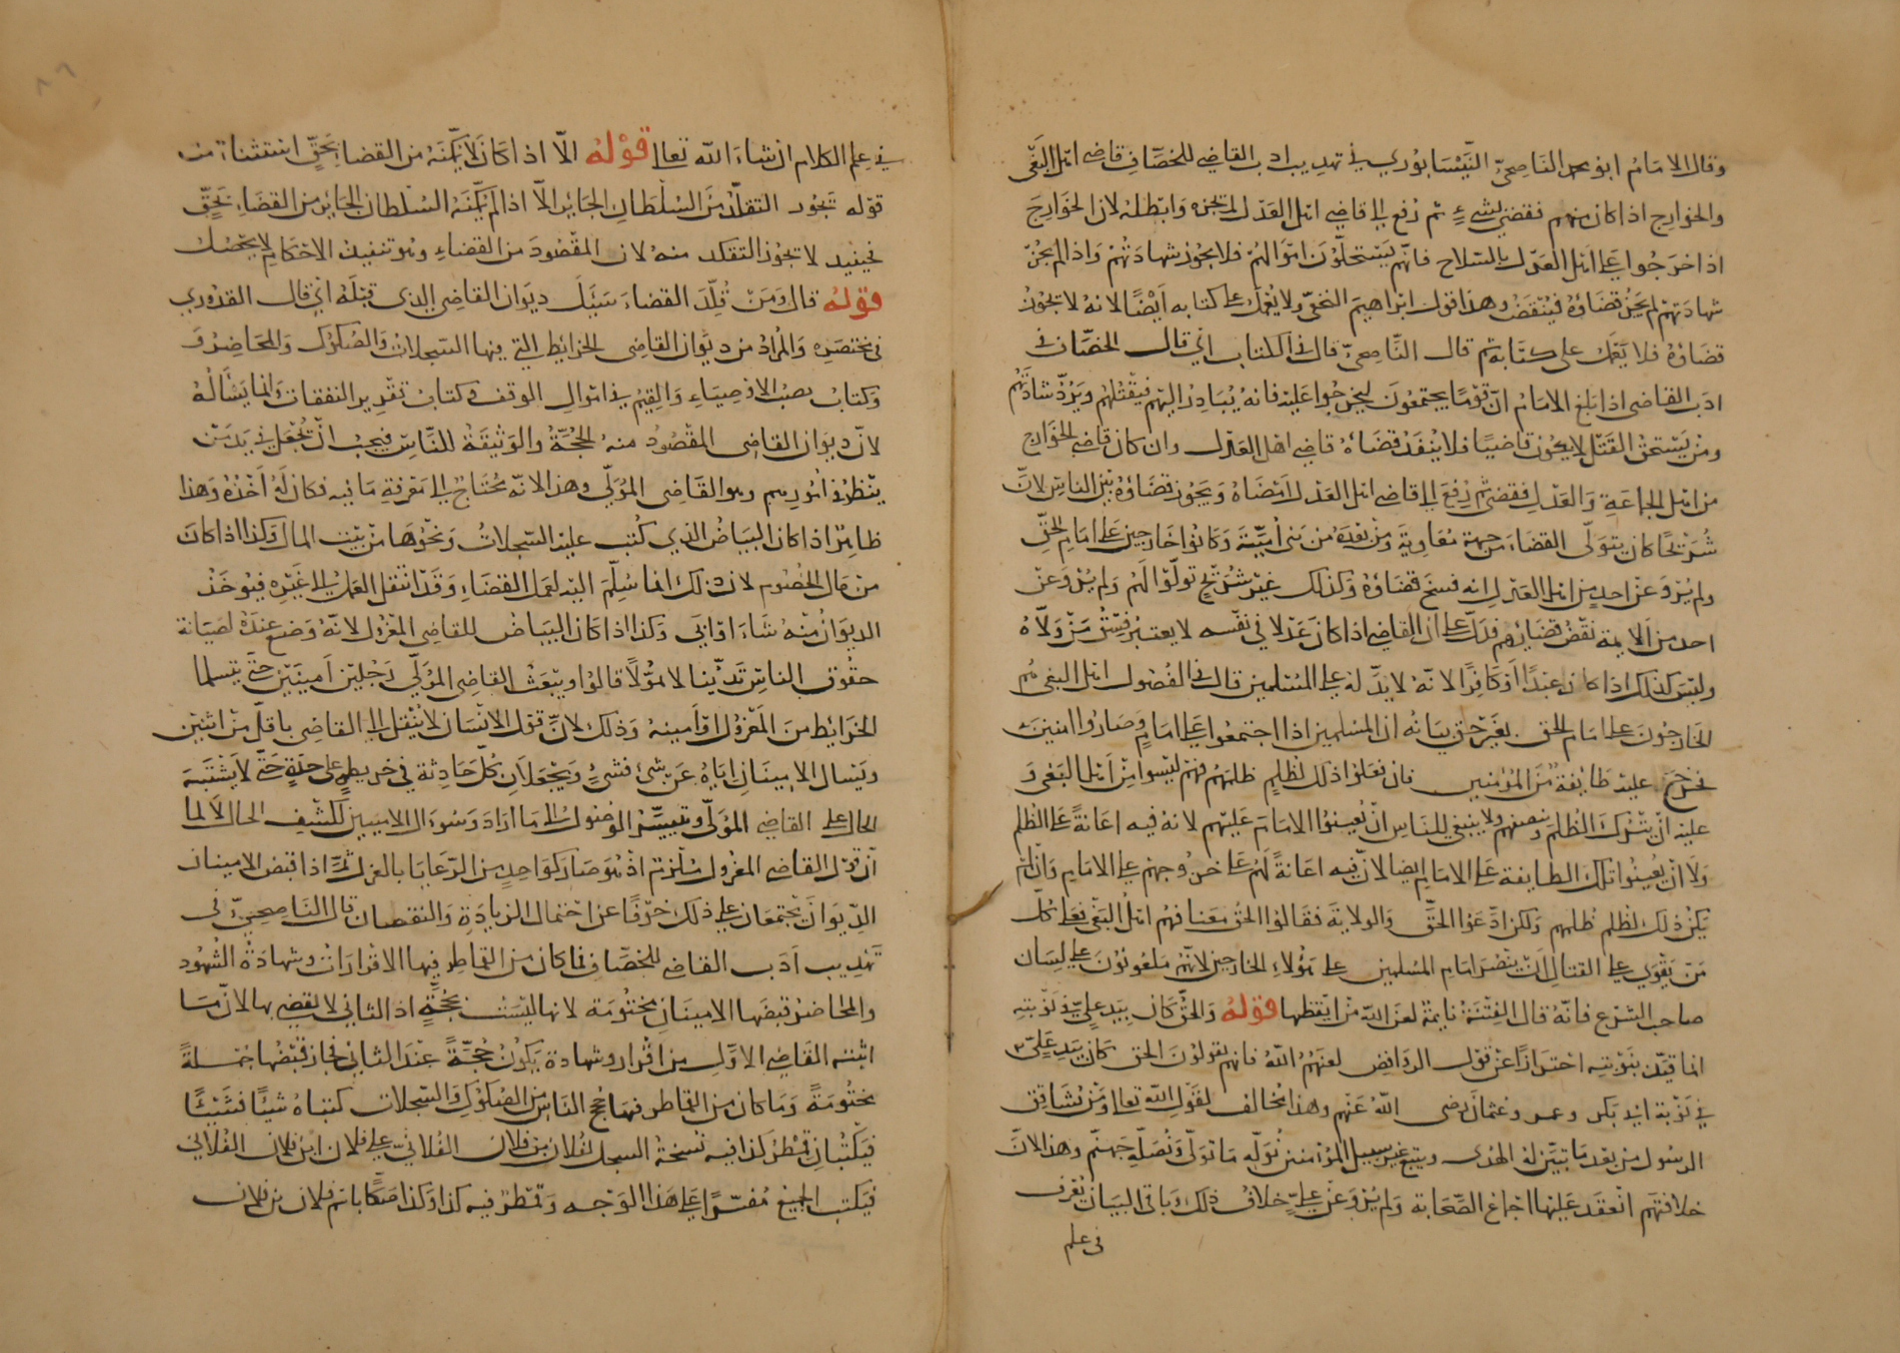 وقال الامام ابو محمد الناصحي النيسابوري في تهذيب ادب القاضي للخصاف قاضي اهل البغي
والخوارج اذا كان منهم فقضى بشيء ثم رفع الى قاضي اهل العدل لم يجزه وابطله لان الخوارج
اذا خرجوا على اهل العدل بالسلاح فانهم يستحلون اموالهم فلا يجوز شهادتهم واذا لم يجز
شهادتهم لم يجز قضاؤه فينقض وهذا قول ابراهيم النخعي ولا يعمل على كتابه ايضا لانه لا يجوز
قضاؤه فلا يعمل على كتابه ثم قال الناصحي قال في الكتاب اي قال الخصاف في
ادب القاضي اذا بلغ الامام ان قوما يجتمعون ليخرجوا عليه فانه يبادر اليهم فيقتلهم ويرد شهادتهم
ومن يستحق القتل لا يكون قاضيا فلا ينفذ قضاءه قاضي اهل العدل وان كان قاضي الخوارج
من اهل الجماعة والعدل فقضى ثم رفع الى قاضي اهل العدل امضاه ويجوز قضاؤه بين الناس لان
شريحا كان يتولى القضاء من جهة معاوية ومن بعده من بني امية وكانوا خارجين على امام الحق
ولم يرو عن احد من اهل العدل انه فسخ قضاؤه وكذلك غير شريح تولوا لهم ولم يرو عن
احد من الايمة نقض قضاياهم فدل على ان القاضي اذا كان عدلا في نفسه لا يعتبر فسق من ولاه
وليس كذلك اذا كان عبدا او كافرا لانه لا يد له على المسلمين قال في الفصول اهل البغي هم
الخارجون على امام الحق بغير حق بيانه ان المسلمين اذا اجتمعوا على امام وصاروا امنين
فخرج عليه طايفة من المؤمنين فان فعلوا ذلك لظلم ظلمهم فهم ليسوا من اهل البغي و
عليه ان يترك الظلم وينصفهم ولا ينبغي للناس ان يعينوا الامام عليهم لانه فيه اعانة على الظلم
ولا ان يعينوا تلك الطايفة على الامام ايضا لان فيه اعانة لهم على خروجهم على الامام وان لم
يكن ذلك لظلم ظلمهم ولكن ادعوا الحق والولاية فقالوا الحق معنا فهم اهل البغي فعلى كل
من يقوى على القتال ان ينصر امام المسلمين على هؤلاء الخارجين لانهم ملعونون على لسان
صاحب الشرع فانه قال الفتنة نايمة لعن الله من ايقظها قوله والحق كان بيد علي في نوبته
انما قيد بنوبته احترازا عن قول الروافض لعنهم الله فانهم يقولون الحق كان بيد علي
في نوبة ابي بكر وعمر وعثمان رضي الله عنهم وهذا مخالف لقول الله تعالى ومن يشاقق
الرسول من بعد ما تبين له الهدى ويتبع غير سبيل المؤمنين نوله ما تولى ونصله جهنم وهذا لان
خلافتهم انعقد عليها اجماع الصحابة ولم يرو عن علي خلاف ذلك وباقي البيان يعرف
في علم
في علم الكلام ان شاء الله تعالى قوله الا اذا كان لا يمكنه من القضا بحق استثناء من
قوله تجوز التقلد من السلطان الجائر الا اذا لم يمكنه السلطان الجائر من القضاء بحق
فحينيد لا تجوز التقلد منه لان المقصود من القضاء وهو تنفيذ الاحكام لا يحصل
قوله قال ومن قلد القضاء سيل ديوان القاضي الذي قبله اي قال القدوري
في مختصره والمراد من ديوان القاضي الخرايط التي فيها السجلات والصكوك والمحاضر و
وكتاب نصب الاوصياء والقيم في اموال الوقف وكتاب تقدير النفقات وانما يساله
لان ديوان القاضي المقصود منه الحجة والوثيقة للناس فيجب ان تجعل في يد من
ينظر في امورهم وهو القاضي المولى وهذا لانه محتاج الى معرفة ما فيه فكان له اخذه وهذا
ظاهر اذا كان البياض الذي كتب عليه السجلات ونحوها من بيت المال وكذا اذا كان
من مال الخصوم لان ذلك انما سلم اليه لعمل القضاء وقد انتقل العمل الى غيره فيوخذ
الديوان منه شاء او ابى وكذا اذا كان البياض للقاضي المعزول لانه وضع عنده لصيانة
حقوق الناس تدينا لا تمولا قالوا ويبعث القاضي المولى رجلين امينين حتى يتسلما
الخرايط من المعزول او امينه وذلك لان قول الانسان لا ينتقل الى القاضي باقل من اثنين
ويسال الامينان اياه عن شئ فشئ ويجعلان كل حادثة في خريطة على حدة حتى لا يشتبه
الحال على القاضي المولى وتيسير الوصول الى ما اراد وسوال الامينين لكشف الحال لا لما
ان قول القاضي المعزول ملزم اذ هو صار كواحد من الرعايا بالعزل ثم اذا قبض الامينان
الديوان يختمعان على ذلك خوفا عن احتمال الزيادة والنقصان قال الناصحي في
تهذيب ادب القاضي للخصاف فما كان من القماطر فيها الاقرارات وشهادة الشهود
والمحاضر قبضها الامينان مختومة لانها ليست بحجة اذ الثاني لا يقضي بها لان ما
اثبته القاضي الاول من اقرار وشهادة يكون حجة عند الثاني فجاز قبضها جملة
مختومة وما كان من القماطر فيها حجج الناس من الصكوك والسجلات كتباه شيئا فشيئا
فيكتبان قمطر كذا فيه نسخة السجل لفلان بن فلان الفلاني على فلان ابن فلان الفلاني
فيكتب الجميع مفسرا على هذا الوجه وقمطر فيه كذا وكذا صكا باسم فلان بن فلان